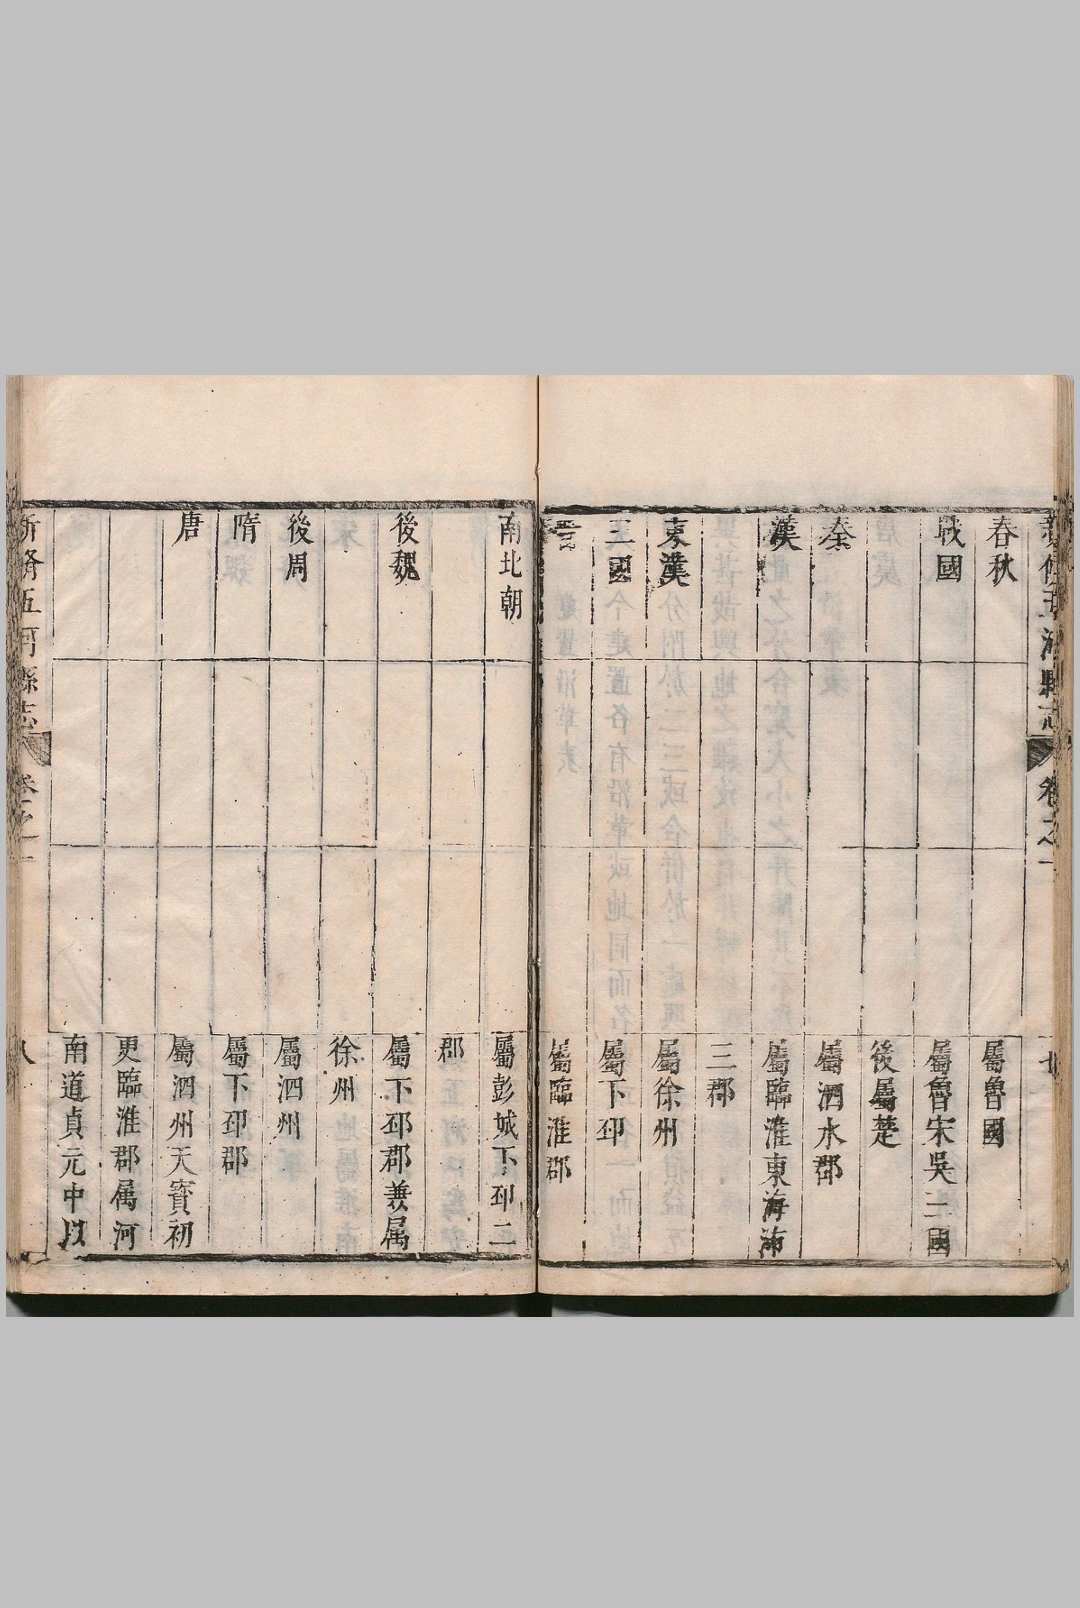 新修五河縣志 卷之一 七
春秋 屬魯國
戰國 屬魯宋吳三國
後屬楚
秦 屬泗水郡
漢 屬臨淮東海沛
三郡
東漢 屬徐州
三國 屬下邳
晉 屬臨淮郡
南北朝 屬彭城下邳二
郡
後魏 屬下邳郡兼属
徐州
後周 屬泗州
隋 屬下邳郡
唐 屬泗州天寳初
更臨淮郡属河
南道貞元中以
新脩五河縣志 卷之一 八